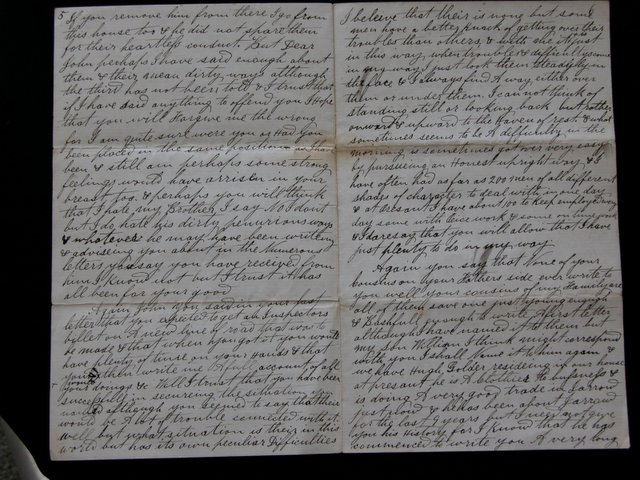 5 If you remove him from there I go from
this house too & he did not spare them
for their heartless conduct. But Dear
John perhaps I have said enough about
them & their mean dirty ways although
the third has not been told & I trust that
if I have said anything to offend you I Hope
that you will Forgive me the wrong
for I am quite sure were you or Had you
been placed in the same position as I have
been & still am perhaps some strong
feelings would have arrisen in your
breast too. & perhaps you will think
that I hate my Brother, I say No I dont
but I do hate his dirty penurious ways
& whatever he may have been writeing
& adviseing you about in the numerous
letters you say you have received from
him I know not but I trust it has
all been for your good
Again John you said in your last
letter that you expected to get an Inspectors
billet on A new line of road that was to
be made & that when you got it you would
have plenty of time on your Hands & that
you would then write me A full account of all
your doings &c Well I trust that you have been
successful in secureing the situation
named although you seemed to say that their
would be A lot of trouble connected with it.
Well but what situation is their in this
world but has its own peculiar Difficulties
I beleive that their is none but some
men have a better knack of getting over their
troubles than others & with me it is just
in this way when troubles & difficultys come
in my way I just look them steadily in
the face & I always find A way either over
them or under them. I cannot think of
standing still or looking back but rather
onward & upward to the Haven of rest & what
sometimes seems to be A difficulty in the
morning is sometimes got over very easy
by pursueing an Honest upright way & I
have often had as far as 200 men of all different
shades of character to deal with in one day
& at Present I have about 100 to keep employed every
day some with piece work & some on time work
& I dare say that you will allow that I have
just plenty to do in my way
Again you say that None of your
Cousins on your Fathers side ever write to
you well your cousins of my Family are
all of them save one just young enough
& Bashful enough to write A first letter
although I have named it to them but
my Son William I think might correspond
with you I shall Name it to him again &
we have Hugh Golder resideing in our house
at presant he is A clothier to business &
is doing A very good trade in Jarrow
just now & he has been about Jarrow
for the last 5 years but I need not give
you his History for I know that he has
commenced to write you A very long